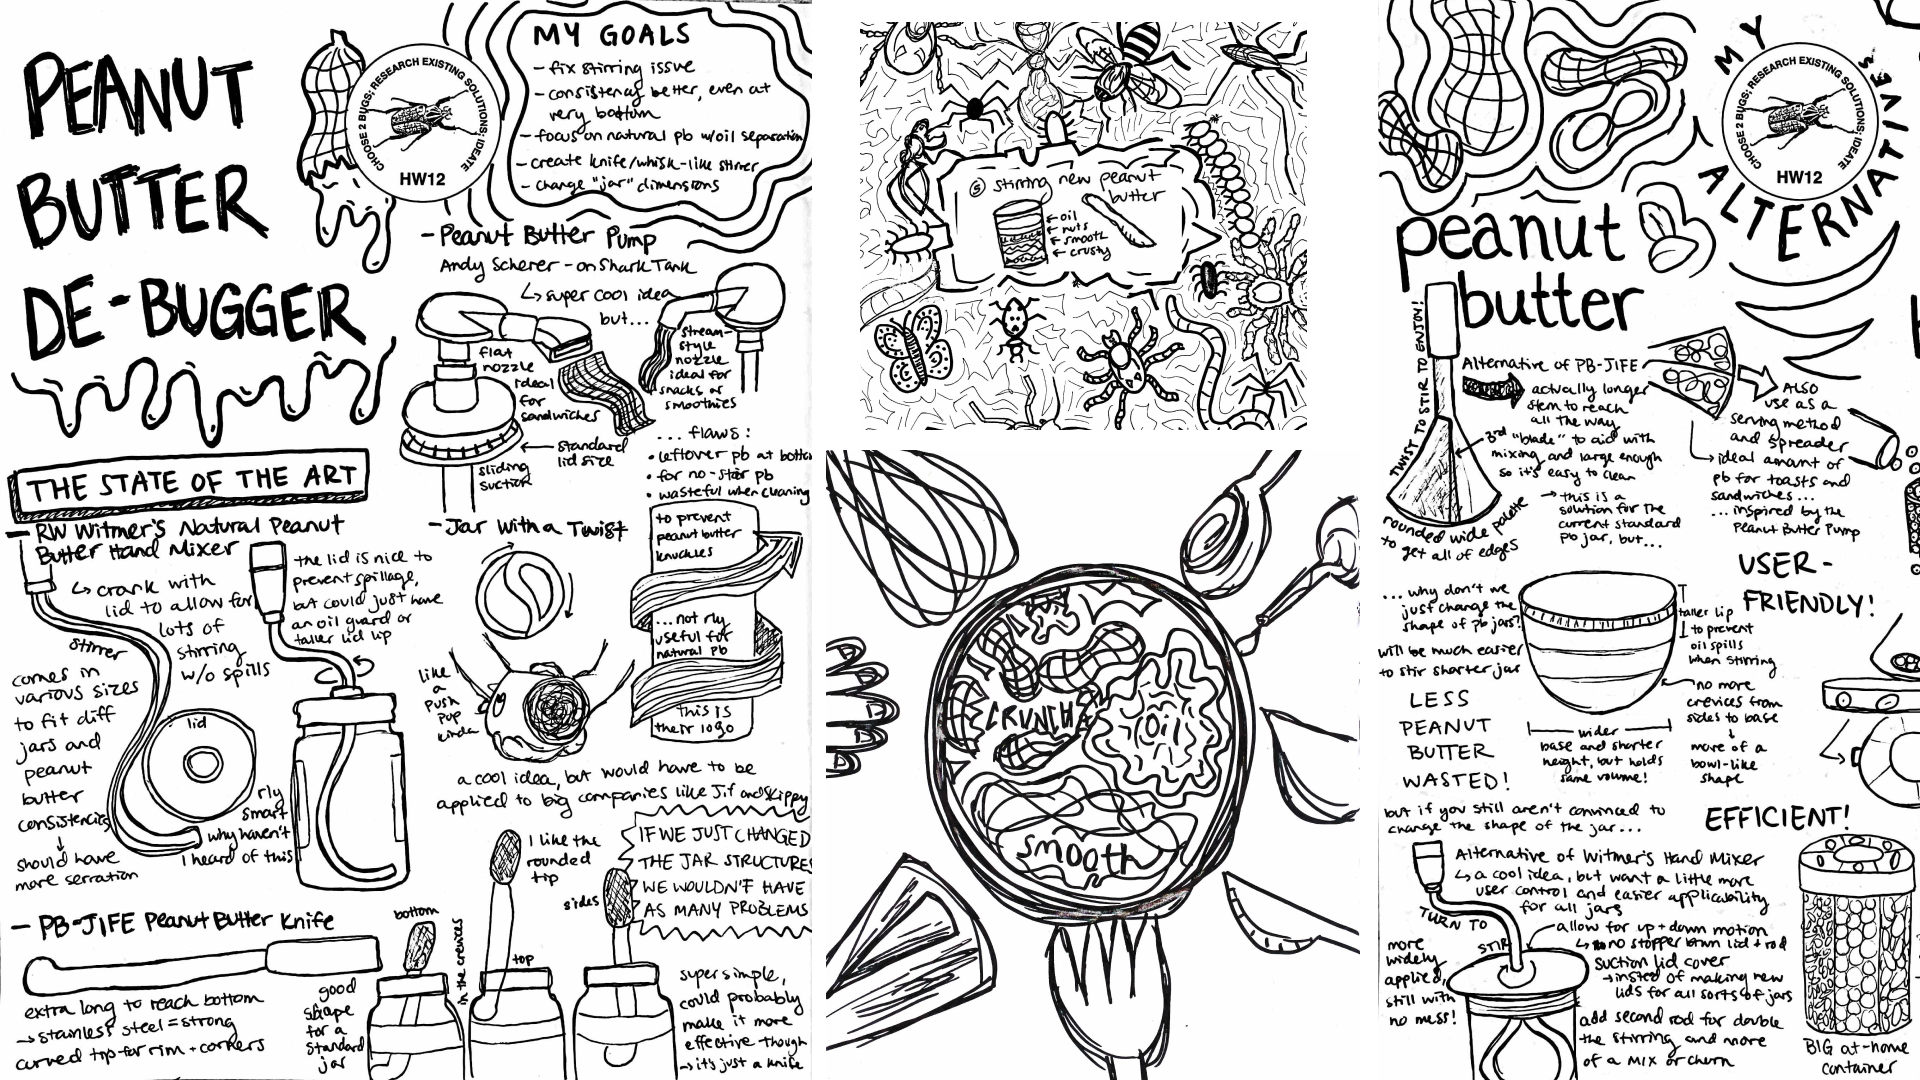 PEANUT
BUTTER
DE-BUGGER
CHOOSE 2 BUGS; RESEARCH EXISTING SOLUTIONS; IDEATE
HW12
MY GOALS
- fix stirring issue
- consistency better, even at
very bottom
- focus on natural pb w/oil separation
- create knife/whisk-like stirrer
- change "jar" dimensions
- Peanut Butter Pump
Andy Scherer - on Shark Tank
↳ super cool idea
but...
flat
nozzle
ideal
for
sandwiches
stream-
style
nozzle
ideal for
snacks or
smoothies
← standard
lid size
sliding
suction
... flaws:
• leftover pb at bottom
• for no-stir pb
• wasteful when cleaning
THE STATE OF THE ART
- RW Witmer's Natural Peanut
Butter Hand Mixer
↳ crank with
lid to allow for
lots of
stirring
w/o spills
the lid is nice to
prevent spillage,
but could just have
an oil guard or
taller lid lip
stirrer
comes in
various sizes
to fit diff
jars and
peanut
butter
consistencies
↓
should have
more serration
lid
rly
smart
why haven't
I heard of this
- Jar With a Twist
to prevent
peanut butter
knuckles
...not rly
useful for
natural pb
this is
their logo
like
a
push
pup
kinda
a cool idea, but would have to be
applied to big companies like Jif and Skippy
IF WE JUST CHANGED
THE JAR STRUCTURES
WE WOULDN'T HAVE
AS MANY PROBLEMS
- PB-JIFE Peanut Butter Knife
extra long to reach bottom
→ stainless steel = strong
curved tip for rim + corners
good
shape
for a
standard
jar
bottom
in the crevices
I like the
rounded
tip
top
sides
super simple,
could probably
make it more
effective though
→ it's just a knife
⑤ stirring new peanut
butter
← oil
← nuts
← smooth
← crusty
CRUNCH
Oil
smooth
MY
ALTERNATIVES
CHOOSE 2 BUGS; RESEARCH EXISTING SOLUTIONS; IDEATE
HW12
peanut
butter
TWIST TO STIR TO ENJOY!
Alternative of PB-JIFE
actually longer
stem to reach
all the way
3rd "blade" to aid with
mixing and large enough
so it's easy to clean
→ this is a
solution for the
current standard
pb jar, but...
rounded wide palette
to get all of edges
ALSO
use as a
serving method
and spreader
↳ ideal amount of
pb for toasts and
sandwiches...
... inspired by the
Peanut Butter Pump
USER-
FRIENDLY!
...why don't we
just change the
shape of pb jars?
will be much easier
to stir shorter jar
LESS
PEANUT
BUTTER
WASTED!
taller lip
to prevent
oil spills
when stirring
no more
crevices from
sides to base
↓
more of a
bowl-like
shape
wider
base and shorter
height, but holds
same volume!
but if you still aren't convinced to
change the shape of the jar...
EFFICIENT!
Alternative of Witmer's Hand Mixer
↳ a cool idea, but want a little more
user control and easier applicability
for all jars
TURN TO
STIR
allow for up + down motion
↳ no stopper btwn lid + rod
suction lid cover
→ insted of making new
lids for all sorts of jars
more
widely
applied,
still with
no mess!
add second rod for double
the stirring and more
of a mix or churn
BIG at-home
container